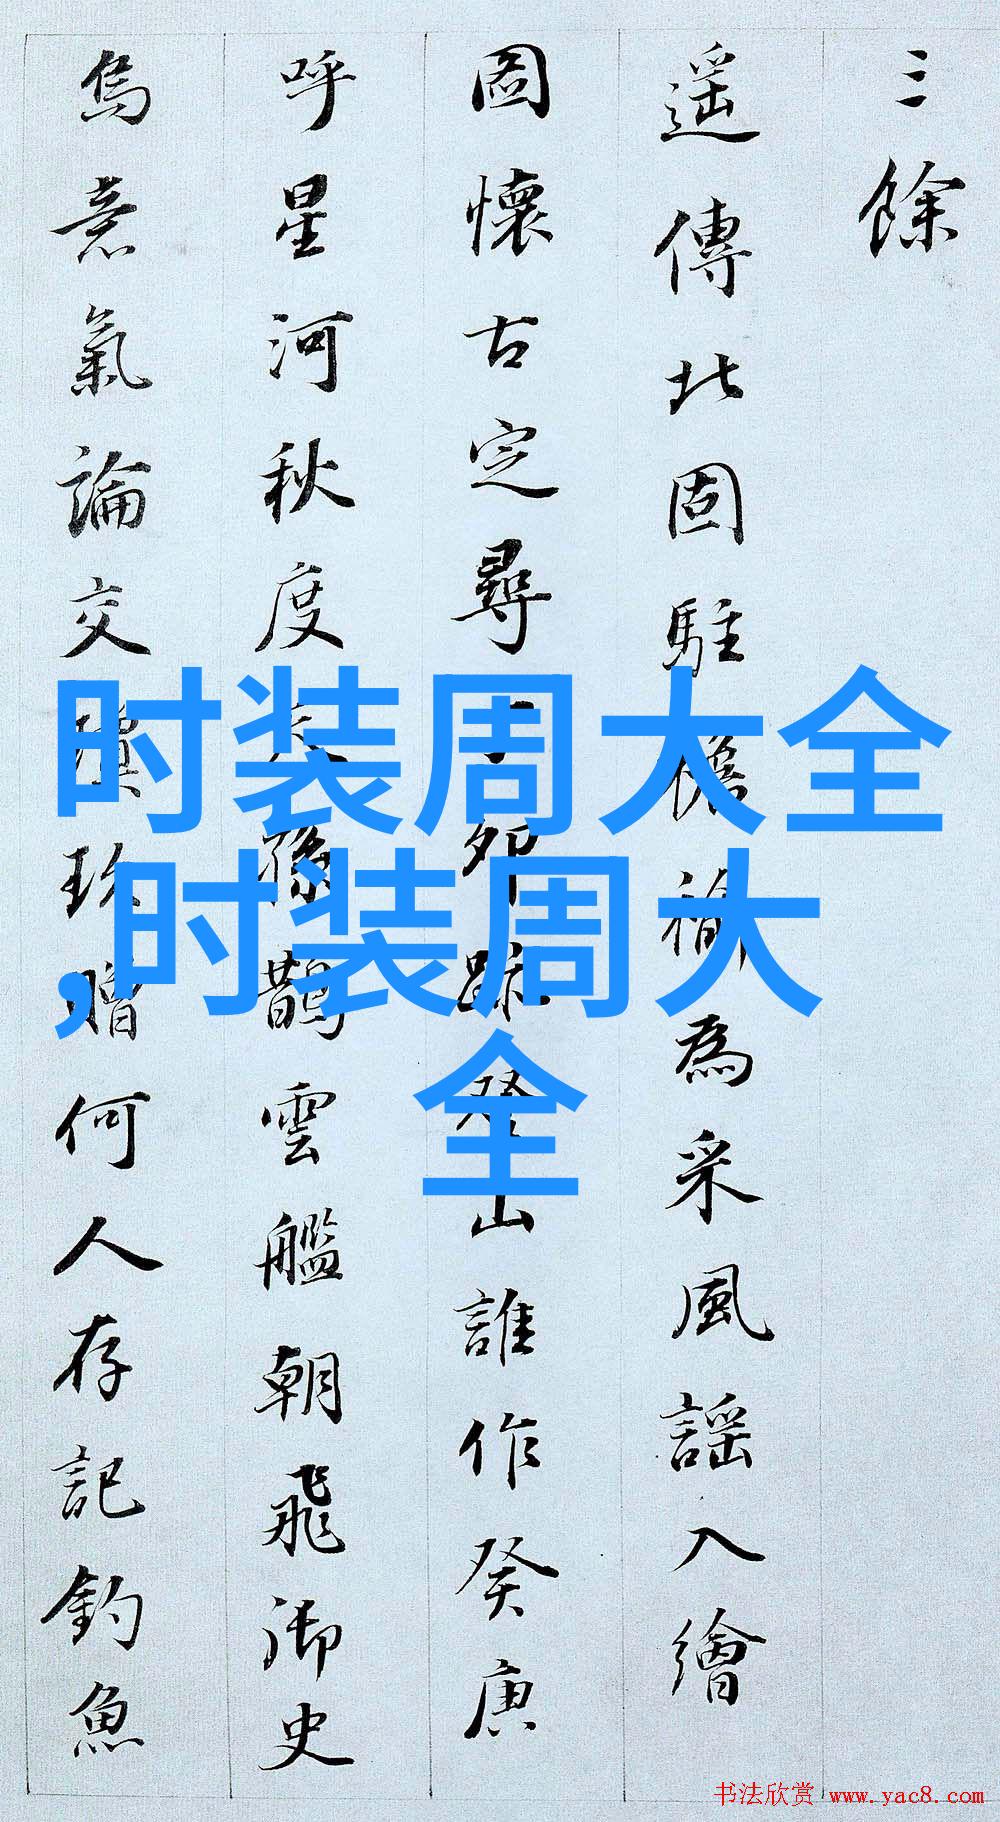 三餘
遥傳北固駐為采風謡入繪
圖懷古定尋卯登山誰作癸庚
呼星河秋度孫鵲雲艦朝飛御史
烏意氣論交瓊玖贈何人存記釣魚
时装周大全
,时装周大
全
书法欣赏 www.yac8.com